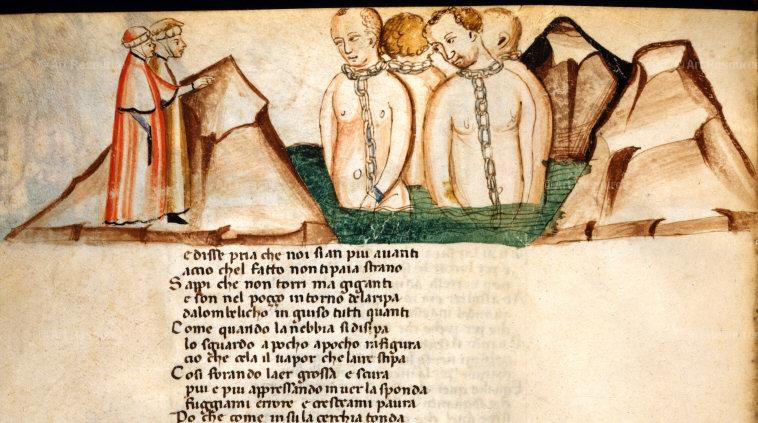 e disse pria che noi sian piu auanti
accio chel fatto non ti paia strano
Sappi che non torri ma giganti
e son nel poço intorno dela ripa
dalombelicho in guiso tutti quanti
Come quando la nebbia si disipa
lo sguardo a pocho a pocho rafigura
cio che cela il uapor che laire stipa
Cosi forando laer grossa e scura
piu e piu appressando inuer la sponda
fuggiami errore e cresceami paura
Po che come in su la cerchia tonda